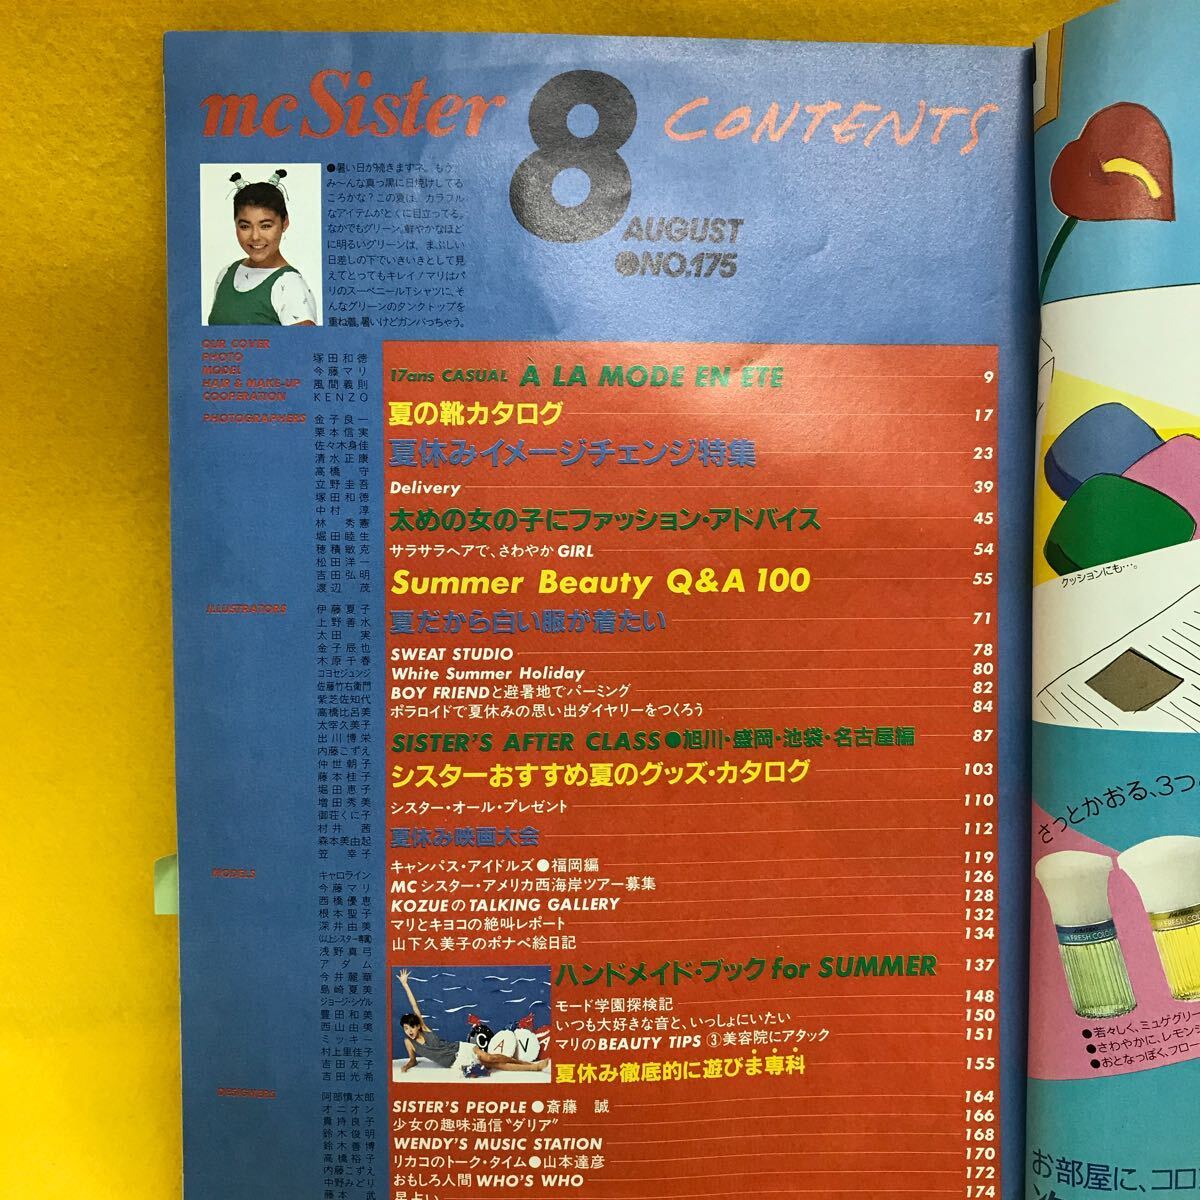 mc Sister
8
CONTENTS
AUGUST
●NO.175
●暑い日が続きますネ。もう
み〜んな真っ黒に日焼けしてる
ころかな?この夏は、カラフル
なアイテムがとくに目立ってる。
なかでもグリーン。鮮やかなほど
に明るいグリーンは、まぶしい
日差しの下でいきいきとして見
えてとってもキレイ!マリはパ
リのスーベニールTシャツに、そ
んなグリーンのタンクトップを
重ね着。暑いけどガンバっちゃう。
OUR COVER
PHOTO 塚田和徳
MODEL 今藤マリ
HAIR & MAKE-UP 風間義則
COOPERATION KENZO
PHOTOGRAPHERS 金子良一
栗本信実
佐々木身佳
清水正康
高橋 守
立野圭吾
塚田和徳
中村 淳
林 秀憲
堀田睦生
穂積敏克
松田洋一
吉田弘明
渡辺 茂
ILLUSTRATORS 伊藤夏子
上野善水
太田 実
金子辰也
木原千春
コヨセジュンジ
佐藤竹右衛門
紫芝佐知代
高橋比呂美
太宰久美子
出川博栄
内藤こずえ
仲世朝子
藤本桂子
堀田恵子
増田秀美
御荘くに子
村井 茜
森本美由起
笠 幸子
MODELS キャロライン
今藤マリ
西橋優恵
根本聖子
深井由美
(以上シスター専属)
浅野真弓
アダム
今井麗華
島崎夏美
ジョージ・シゲル
豊田和美
西山由美
ミッキー
村上里佳子
吉田友子
吉田光希
DESIGNERS 阿部慎太郎
オニオン
貴持良子
鈴木俊明
鈴木善博
高橋裕子
内藤こずえ
中野みどり
藤本 武
17ans CASUAL À LA MODE EN ÉTÉ 9
夏の靴カタログ 17
夏休みイメージチェンジ特集 23
Delivery 39
太めの女の子にファッション・アドバイス 45
サラサラヘアで、さわやかGIRL 54
Summer Beauty Q&A 100 55
夏だから白い服が着たい 71
SWEAT STUDIO 78
White Summer Holiday 80
BOY FRIENDと避暑地でパーミング 82
ポラロイドで夏休みの思い出ダイヤリーをつくろう 84
SISTER'S AFTER CLASS●旭川・盛岡・池袋・名古屋編 87
シスターおすすめ夏のグッズ・カタログ 103
シスター・オール・プレゼント 110
夏休み映画大会 112
キャンパス・アイドルズ●福岡編 119
MCシスター・アメリカ西海岸ツアー募集 126
KOZUEのTALKING GALLERY 128
マリとキヨコの絶叫レポート 132
山下久美子のポナペ絵日記 134
CAV
ハンドメイド・ブック for SUMMER 137
モード学園探検記 148
いつも大好きな音と、いっしょにいたい 150
マリのBEAUTY TIPS ③美容院にアタック 151
夏休み徹底的に遊びま専科 155
SISTER'S PEOPLE●斎藤 誠 164
少女の趣味通信“ダリア” 166
WENDY'S MUSIC STATION 168
リカコのトーク・タイム●山本達彦 170
おもしろ人間WHO'S WHO 172
星占い 174
クッションにも…。
さっとかおる、3つ
FRESH COLO
●若々しく、ミュゲグリー
●さわやかに、レモン
●おとなっぽく、フロー
お部屋に、コロ